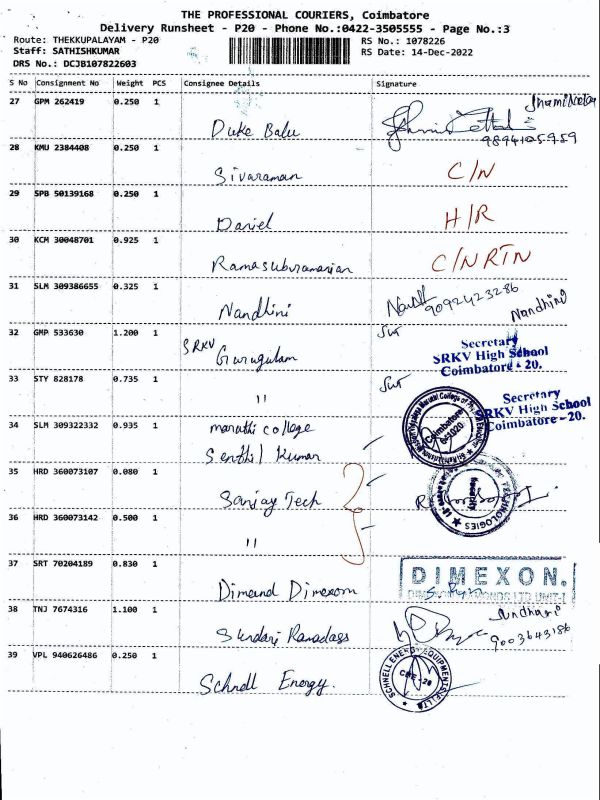 THE PROFESSIONAL COURIERS, Coimbatore
Delivery Runsheet - P20 - Phone No.:0422-3505555 - Page No.:3
Route: THEKKUPALAYAM - P20
RS No.: 1078226
Staff: SATHISHKUMAR
RS Date: 14-Dec-2022
DRS No.: DCJB107822603
S No Consignment No Weight PCS Consignee Details Signature
27 GPM 262419 0.250 1
Duke Balu
9894105959
28 KMU 2384408 0.250 1
Sivaraman C/N
29 SPB 50139168 0.250 1
Daniel H/R
30 KCM 30048701 0.925 1
Ramasubramanian C/N RTN
31 SLM 309386655 0.325 1
Nandhini 9092423286 Nandhini
32 GMP 533630 1.200 1
SRKV Gurugulam
Secretary
SRKV High School
Coimbatore - 20.
33 STY 828178 0.735 1
"
Secretary
SRKV High School
Coimbatore - 20.
34 SLM 309322332 0.935 1
maruthi college
Senthil Kumar
Coimbatore
641020
35 HRD 360073107 0.080 1
Sanjay Tech
TECHNOLOGIES
36 HRD 360073142 0.500 1
"
37 SRT 70204189 0.830 1
Dimand Dimexom
DIMEXON.
38 TNJ 7674316 1.100 1
Sundari Ramadass
9003643186
39 VPL 940626486 0.250 1
Schnell Energy.
SCHNELL ENERGY EQUIPMENTS P LTD
CBE - 20